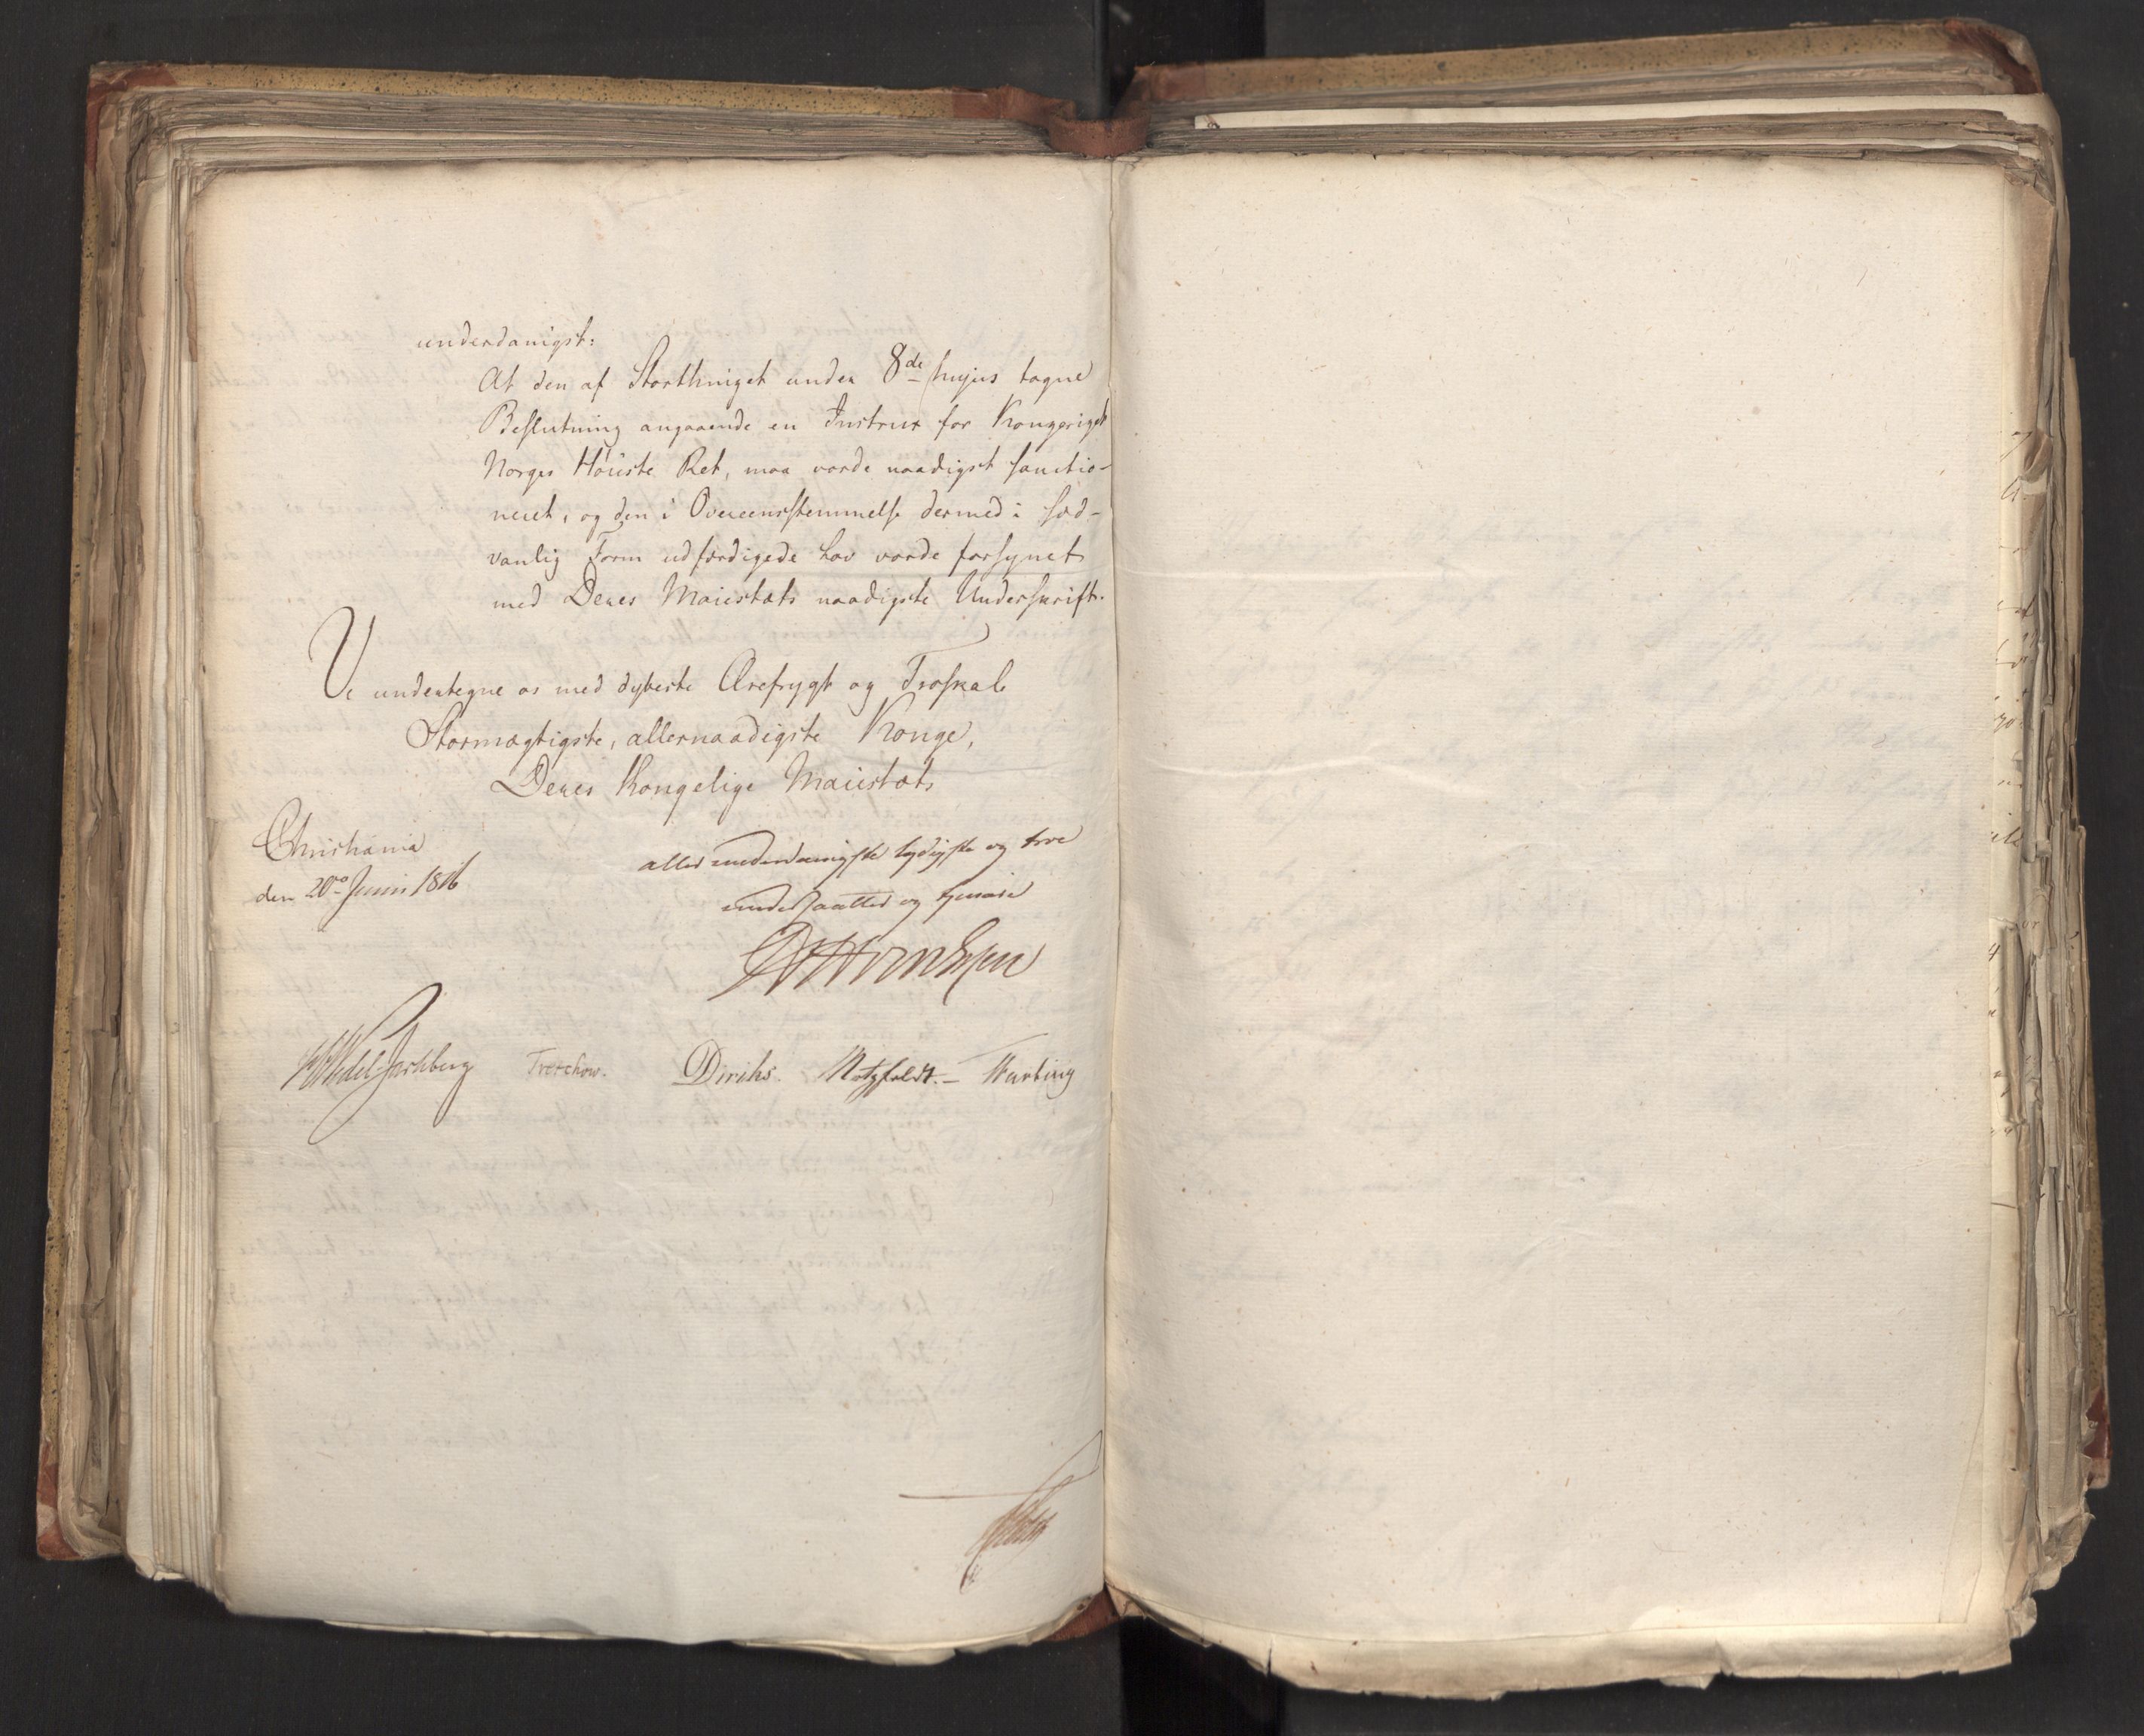 underdanigst:
At den af Storthinget under 8de hujus tagne
Beslutning angaaende en Instrux for Kongeriget
Norges Høieste Ret, maa vorde naadigst sanctio-
neret, og den i Overeensstemmelse dermed i sæd-
vanlig Form udfærdigede Lov vorde forsynet
med Deres Maiestæts naadigste Underskrift.
Vi undertegne os med dybeste Ærefrygt og Troskab
Stormægtigste, allernaadigste Konge,
Deres Kongelige Maiestæts
Christiania
den 20de Junii 1816
allerunderdanigste lydigste og troe
undersaatter og tjenere
Wedel-Jarlsberg Treschow. Diriks. Motzfeldt. –